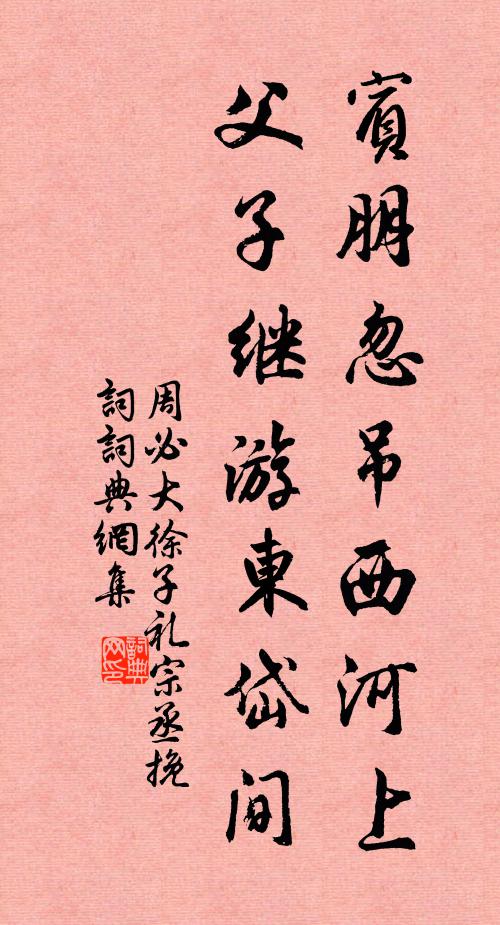 賓朋忽吊西河上
父子继游東岱间
周必大徐子礼宗丞挽
詞詞典網集
詞典
网印